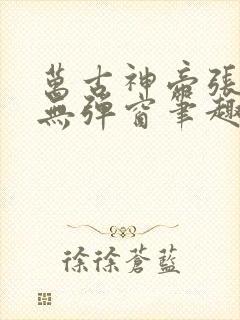 萬古神帝張
無彈窗筆趣
徐徐蒼藍